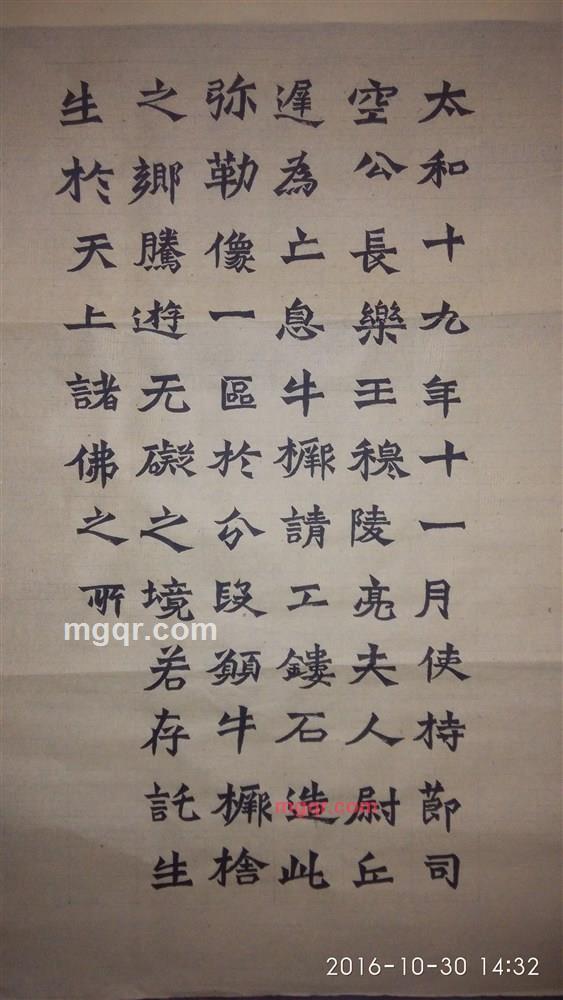 太和十九年十一月使持节司
空公長樂王穆陵亮夫人尉丘
遲為亡息牛橛請工鏤石造此
弥勒像一區於分段願牛橛捨
之鄉騰遊无礙之境若存託生
生於天上諸佛之所
mgqr.com
mgqr.com
2016-10-30 14:32